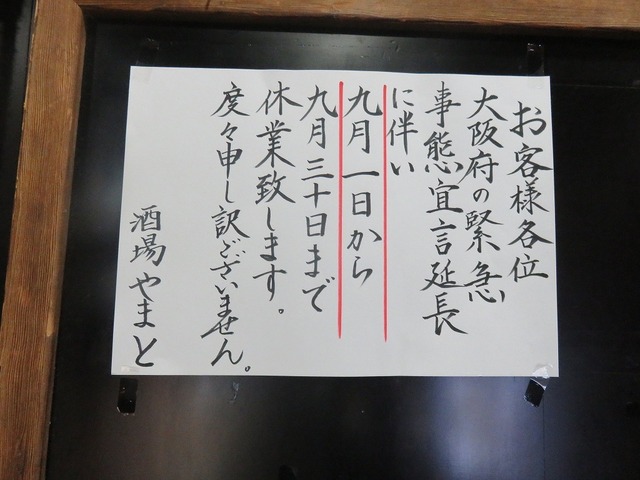 お客様各位
大阪府の緊急
事態宣言延長
に伴い
九月一日から
九月三十日まで
休業致します。
度々申し訳ございません。
酒場やまと